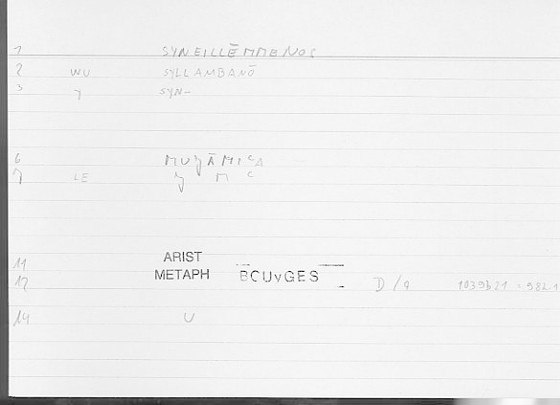 1 SYNEILLĒMMENOS
2 WU SYLLAMBANŌ
3 SYN-
6
7 LE
11 ARIST
12 METAPH BOUvGES D/9 1039b21 : 982.1
14 U